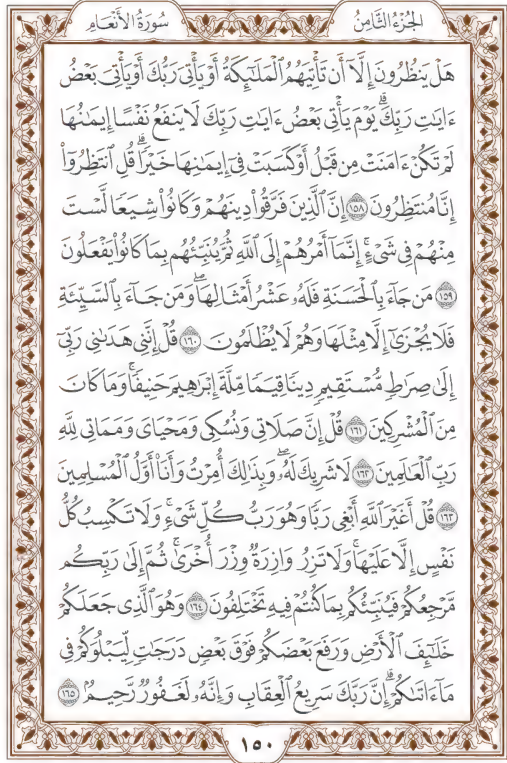 سُورَةُ الأَنْعَامِ
الجُزْءُ الثَّامِنُ
هَلۡ يَنظُرُونَ إِلَّآ أَن تَأۡتِيَهُمُ ٱلۡمَلَٰٓئِكَةُ أَوۡ يَأۡتِيَ رَبُّكَ أَوۡ يَأۡتِيَ بَعۡضُ
ءَايَٰتِ رَبِّكَۗ يَوۡمَ يَأۡتِي بَعۡضُ ءَايَٰتِ رَبِّكَ لَا يَنفَعُ نَفۡسًا إِيمَٰنُهَا
لَمۡ تَكُنۡ ءَامَنَتۡ مِن قَبۡلُ أَوۡ كَسَبَتۡ فِيٓ إِيمَٰنِهَا خَيۡرٗاۗ قُلِ ٱنتَظِرُوٓاْ
إِنَّا مُنتَظِرُونَ ١٥٨ إِنَّ ٱلَّذِينَ فَرَّقُواْ دِينَهُمۡ وَكَانُواْ شِيَعٗا لَّسۡتَ
مِنۡهُمۡ فِي شَيۡءٍۚ إِنَّمَآ أَمۡرُهُمۡ إِلَى ٱللَّهِ ثُمَّ يُنَبِّئُهُم بِمَا كَانُواْ يَفۡعَلُونَ
١٥٩ مَن جَآءَ بِٱلۡحَسَنَةِ فَلَهُۥ عَشۡرُ أَمۡثَالِهَاۖ وَمَن جَآءَ بِٱلسَّيِّئَةِ
فَلَا يُجۡزَىٰٓ إِلَّا مِثۡلَهَا وَهُمۡ لَا يُظۡلَمُونَ ١٦٠ قُلۡ إِنَّنِي هَدَىٰنِي رَبِّيٓ
إِلَىٰ صِرَٰطٖ مُّسۡتَقِيمٖ دِينٗا قِيَمٗا مِّلَّةَ إِبۡرَٰهِيمَ حَنِيفٗاۚ وَمَا كَانَ
مِنَ ٱلۡمُشۡرِكِينَ ١٦١ قُلۡ إِنَّ صَلَاتِي وَنُسُكِي وَمَحۡيَايَ وَمَمَاتِي لِلَّهِ
رَبِّ ٱلۡعَٰلَمِينَ ١٦٢ لَا شَرِيكَ لَهُۥۖ وَبِذَٰلِكَ أُمِرۡتُ وَأَنَا۠ أَوَّلُ ٱلۡمُسۡلِمِينَ
١٦٣ قُلۡ أَغَيۡرَ ٱللَّهِ أَبۡغِي رَبّٗا وَهُوَ رَبُّ كُلِّ شَيۡءٖۚ وَلَا تَكۡسِبُ كُلُّ
نَفۡسٍ إِلَّا عَلَيۡهَاۚ وَلَا تَزِرُ وَازِرَةٞ وِزۡرَ أُخۡرَىٰۚ ثُمَّ إِلَىٰ رَبِّكُم
مَّرۡجِعُكُمۡ فَيُنَبِّئُكُم بِمَا كُنتُمۡ فِيهِ تَخۡتَلِفُونَ ١٦٤ وَهُوَ ٱلَّذِي جَعَلَكُمۡ
خَلَٰٓئِفَ ٱلۡأَرۡضِ وَرَفَعَ بَعۡضَكُمۡ فَوۡقَ بَعۡضٖ دَرَجَٰتٖ لِّيَبۡلُوَكُمۡ فِي
مَآ ءَاتَىٰكُمۡۗ إِنَّ رَبَّكَ سَرِيعُ ٱلۡعِقَابِ وَإِنَّهُۥ لَغَفُورٞ رَّحِيمُۢ ١٦٥
١٥٠